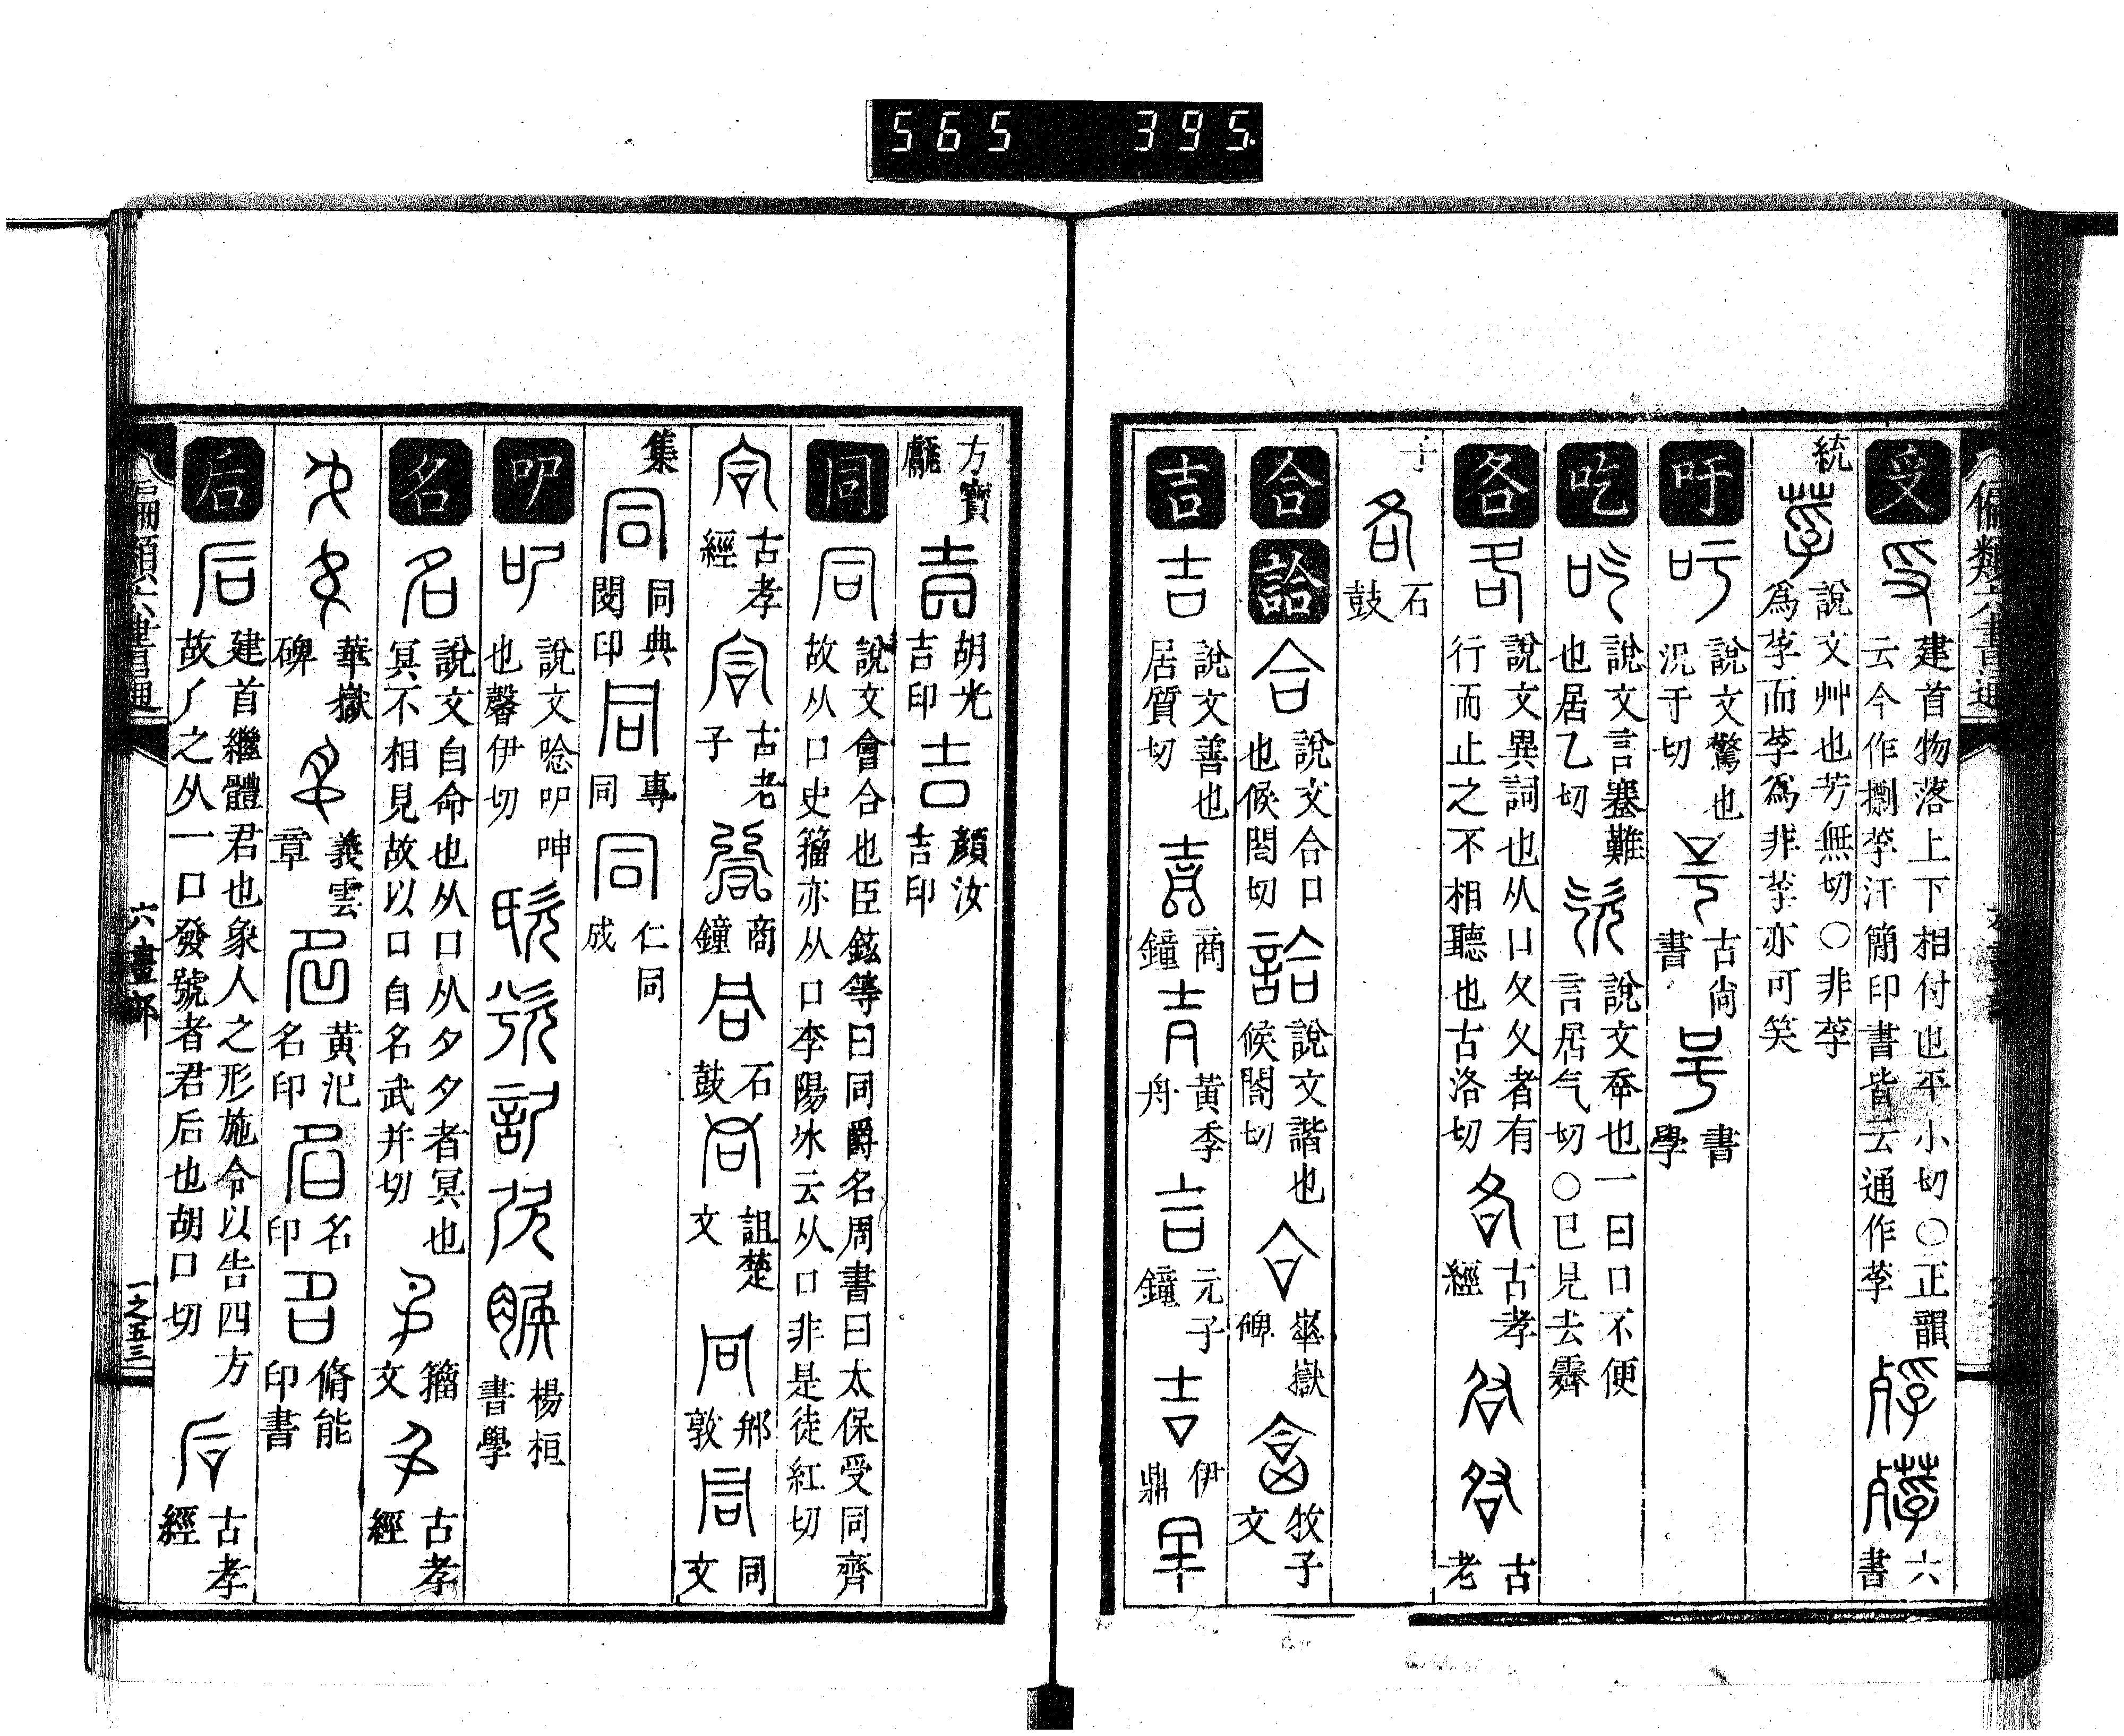 565 395
偏類六書通
受 建首物落上下相付也平小切○正韻
云今作摽莩汗簡印書皆云通作莩
六書
統 說文艸也芳無切○非莩
為莩而莩為非莩亦可笑
吁 說文驚也況于切 古尚書 書學
吃 說文言蹇難也居乙切 說文㐁也一曰口不便
言居气切○巳見去霽
各 說文異詞也从口夂夂者有
行而止之不相聽也古洛切 古孝經 古老
子 石鼓
合 詥 說文合口也候閤切 說文諧也候閤切 華嶽碑 牧子文
吉 說文善也居質切 商鐘 黃季舟 元子鐘 伊鼎
方寶甗 胡光吉印 顏汝吉印
同 說文會合也臣鉉等曰同爵名周書曰太保受同嚌
故从口史籀亦从口李陽冰云从口非是徒紅切
古孝經 古老子 商鐘 石鼓 詛楚文 䢵敦 同文
集 同典閔印 專同 仁同成
吅 說文唸吅呻也馨伊切 楊桓書學
名 說文自命也从口从夕夕者冥也
冥不相見故以口自名武并切 籀文 古孝經
華嶽碑 義雲章 黃氾名印 名印 脩能印書
后 建首繼體君也象人之形施令以告四方
故𠂆之从一口發號者君后也胡口切 古孝經
偏類六書通 六畫部 一之五三